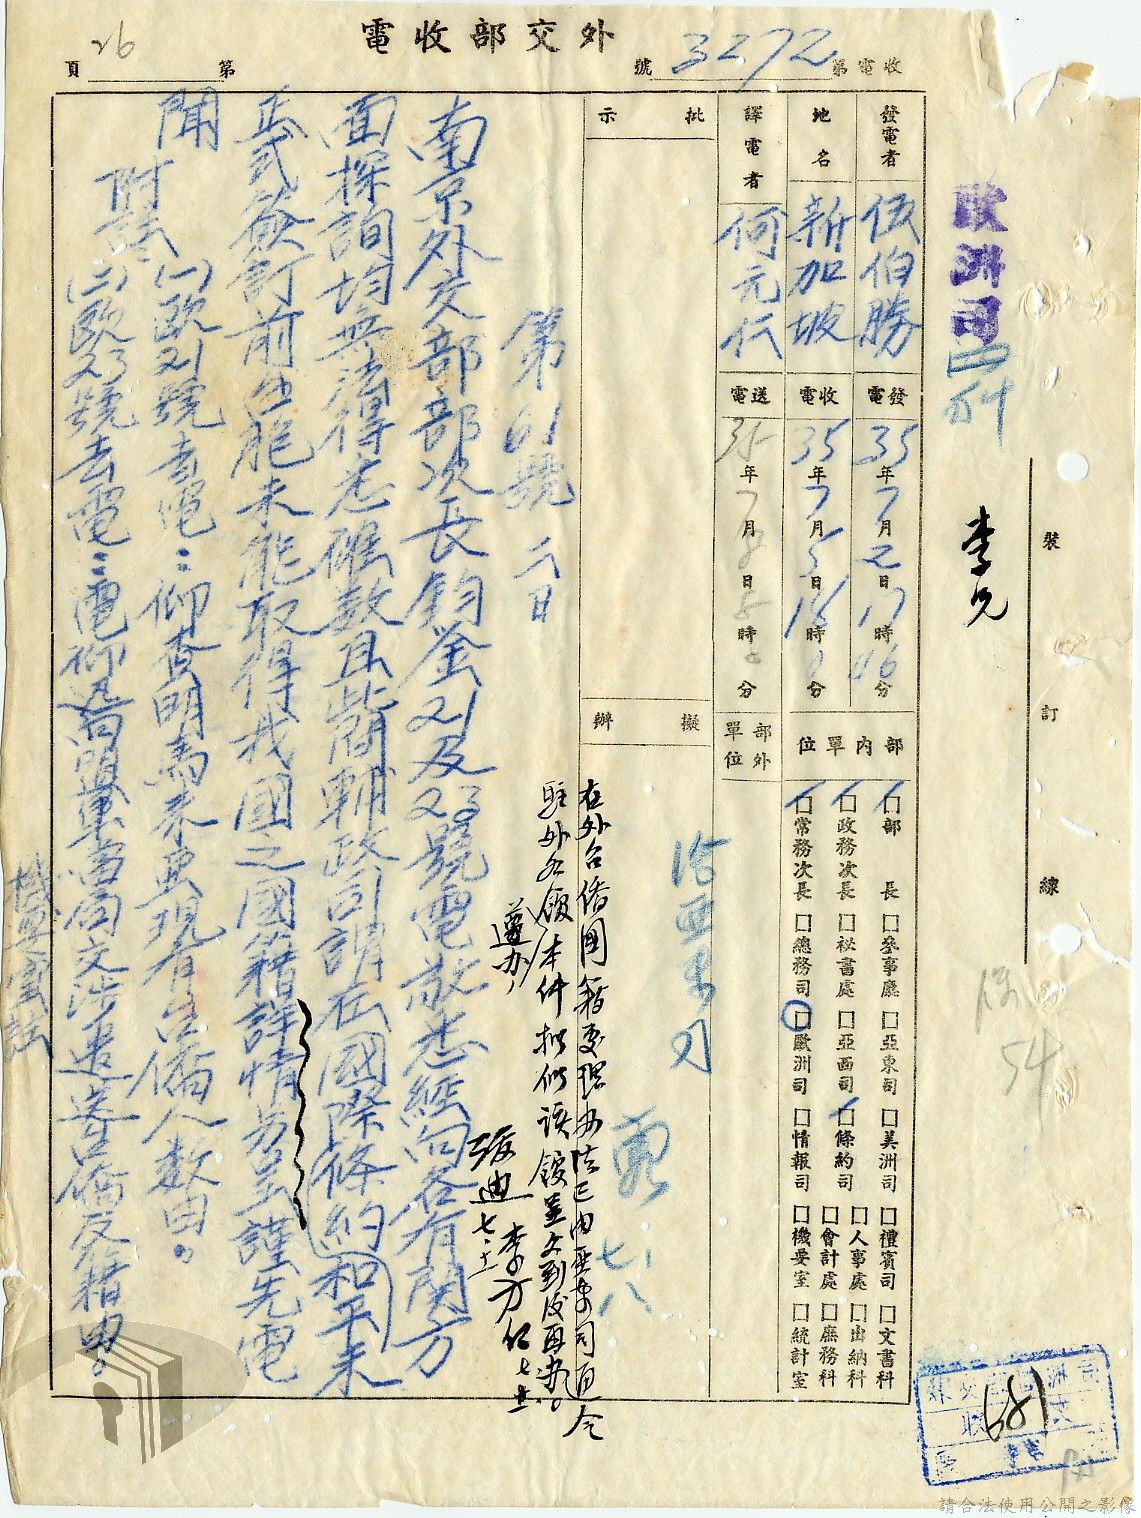 外交部收電
收電第3272號
第26頁
歐洲司
四科
李兄
裝
訂
線
發電者
伍伯勝
發電
35年7月2日17時06分
地名
新加坡
收電
35年7月5日18時分
譯電者
何元仁
送電
35年7月8日時分
部內單位
□部長 □參事廳 □亞東司 □美洲司 □禮賓司 □文書科
□政務次長 □祕書處 □亞西司 □條約司 □人事處 □出納科
□會計處 □庶務科
□常務次長 □總務司 □歐洲司 □情報司 □機要室 □統計室
部外單位
批示
擬辦
洽亞東司
七、八
在外台僑國籍處理辦法已由亞東司通令
駐外各領館本件擬俟該館呈文到後再辦。
遵办
李方仁
張迪 七、十一
第61號 二日
南京外交部部次長鈞鑒21及23號電敬悉經向各有關方
面探詢均無法得悉確數且此間輔政司謂在國際條約和平未
正式簽訂前台胞未能取得我國之國籍詳情另呈謹先電
聞
附註
(一)歐21號去電:仰查明馬來亞現有台僑人數由。
(二)歐23號去電:電仰迅向盟軍當局交涉遣送台僑反籍由。
機要室註
681
54
請合法使用公開之影像